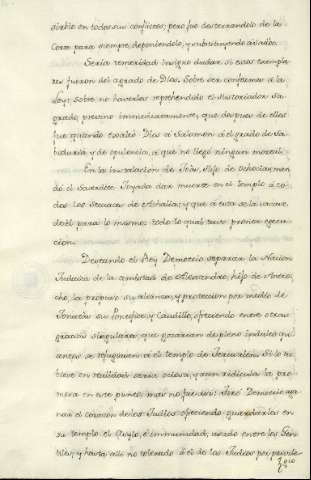 en todas sus conflictos; pero fue desterrandolo de la
Corte para siempre, deponiendolo, y substituyendo à Sadòc.
Seria temeridad insigne dudar si estos exempla
res fueron del agrado de Dios. Sobre ser conformes à la
Ley; Sobre no haverlos reprehendido el Historiador Sa
grado, previno inmediatamente, que despues de ellos
fue quando exaltò Dios à Salomon à el grado de Sa
biduria y de opulencia, à que no llegò ningun mortal.
En la instalacion de Joàs, Hijo de Ochocìas, man
dò el Sacerdote Joyada dar muerte en el templo à to
dos los Sequaces de Athalìa; y que à esta se la
de èl para lo mismo: todo lo qual tuvo prompta execu
cion.
Deseando el Rey Demetrio separar la Nacion
Judaica de la amistad de Alexandro, hijo de Antio
cho, la propuso su alianza, y proteccion por medio de
Jonatàs su Pontifice y Caudillo, ofreciendo entre otras
gracias singulares, que gozarian de pleno indulto qu
antos se refugiasen à el templo de Jerusalèn. Si lo tu
biese en realidad seria ociosa, y aun ridicula la pro
mesa en este punto; mas no fue asi: tirò Demetrio aga
nar el corazon de los Judios ofreciendo guardarles en
su templo el Asylo, è inmunidad, usado entre los Gen
tiles, y hasta alli no tolerado à el de los Judios por